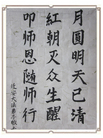 月圓明天已清
紅朝又众生醒
叩师恩随师行